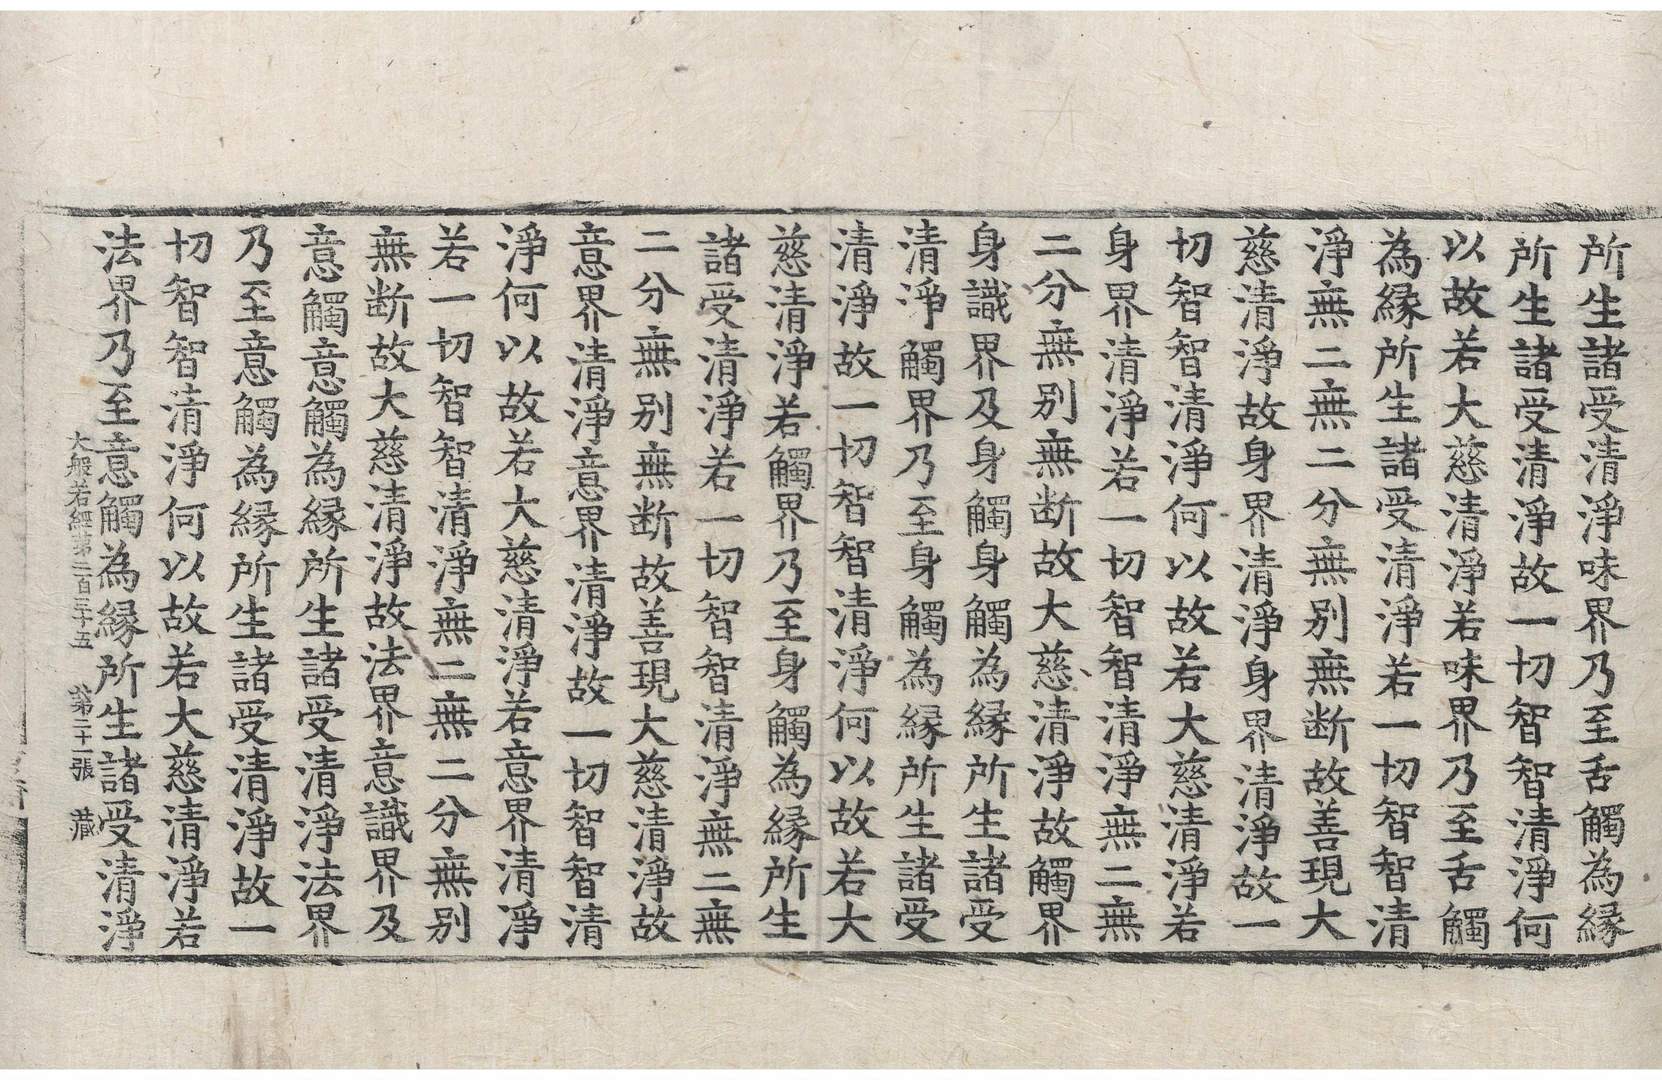 所生諸受清淨味界乃至舌觸為縁
所生諸受清淨故一切智智清淨何
以故若大慈清淨若味界乃至舌觸
為縁所生諸受清淨若一切智智清
淨無二無二分無別無断故善現大
慈清淨故身界清淨身界清淨故一
切智智清淨何以故若大慈清淨若
身界清淨若一切智智清淨無二無
二分無別無断故大慈清淨故觸界
身識界及身觸身觸為縁所生諸受
清淨觸界乃至身觸為縁所生諸受
清淨故一切智智清淨何以故若大
慈清淨若觸界乃至身觸為縁所生
諸受清淨若一切智智清淨無二無
二分無別無断故善現大慈清淨故
意界清淨意界清淨故一切智智清
淨何以故若大慈清淨若意界清淨
若一切智智清淨無二無二分無別
無断故大慈清淨故法界意識界及
意觸意觸為縁所生諸受清淨法界
乃至意觸為縁所生諸受清淨故一
切智智清淨何以故若大慈清淨若
法界乃至意觸為縁所生諸受清淨
大般若經第二百三十五 第二十一張 藏